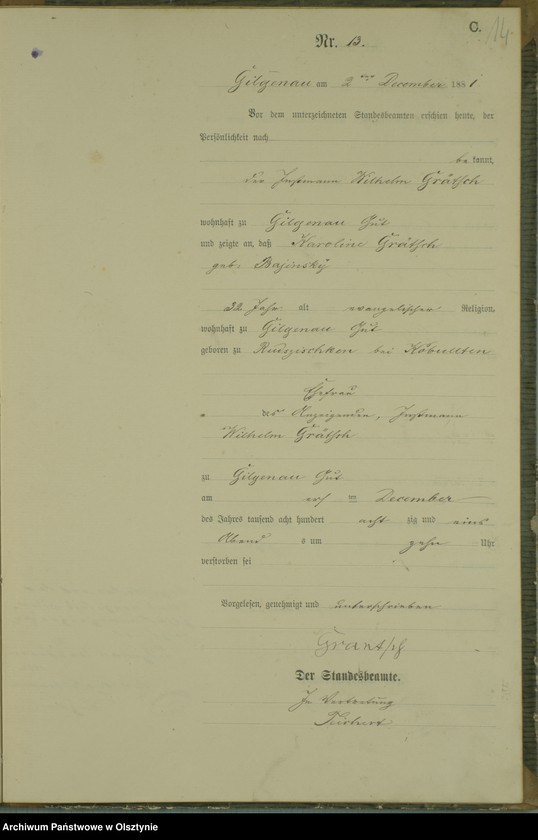 C.
14
Nr. 13.
Gilgenau am 2ten December 1881
Vor dem unterzeichneten Standesbeamten erschien heute, der
Persönlichkeit nach
bekannt,
der Instmann Wilhelm Grätsch
wohnhaft zu Gilgenau Gut
und zeigte an, daß Karoline Grätsch
geb.
Jahr alt evangelischer Religion,
wohnhaft zu Gilgenau Gut
geboren zu bei Kobulten
Ehefrau
des Anzeigenden, Instmann
Wilhelm Grätsch
zu Gilgenau Gut
am ten December
des Jahres tausend acht hundert achtzig und eins
Abends um zehn Uhr
verstorben sei
Vorgelesen, genehmigt und unterschrieben
Der Standesbeamte.
In Vertretung
Archiwum Państwowe w Olsztynie